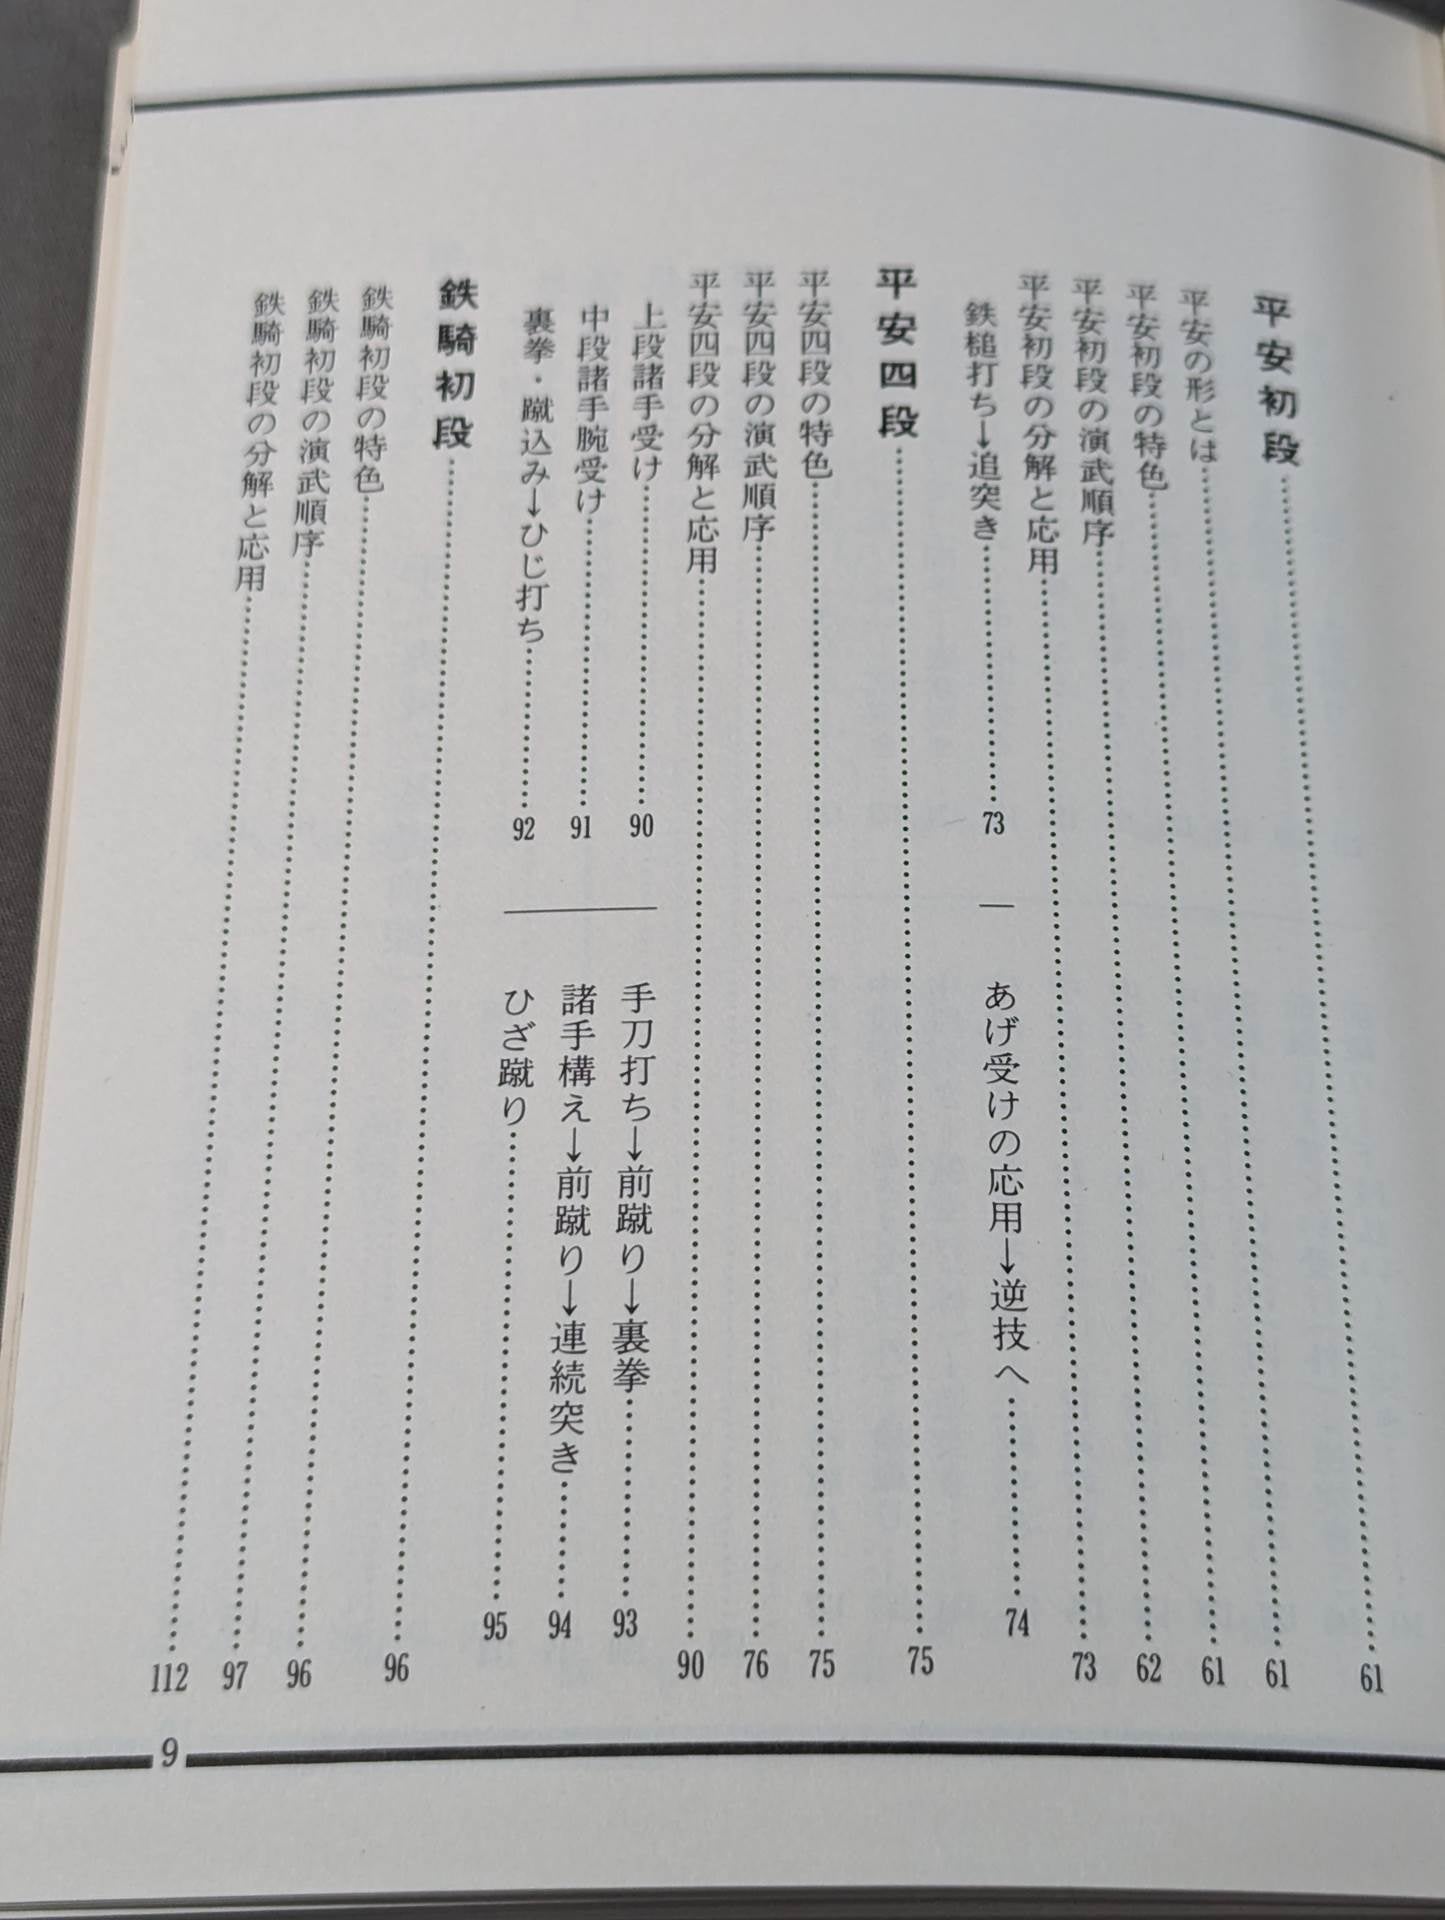 平安初段……61
平安の形とは……61
平安初段の特色……61
平安初段の演武順序……62
平安初段の分解と応用……73
鉄槌打ち→追突き……73
あげ受けの応用→逆技へ……74
平安四段……75
平安四段の特色……75
平安四段の演武順序……76
平安四段の分解と応用……90
上段諸手受け……90
中段諸手腕受け……91
裏拳・蹴込み→ひじ打ち……92
手刀打ち→前蹴り→裏拳……93
諸手構え→前蹴り→連続突き……94
ひざ蹴り……95
鉄騎初段……96
鉄騎初段の特色……96
鉄騎初段の演武順序……97
鉄騎初段の分解と応用……112
9